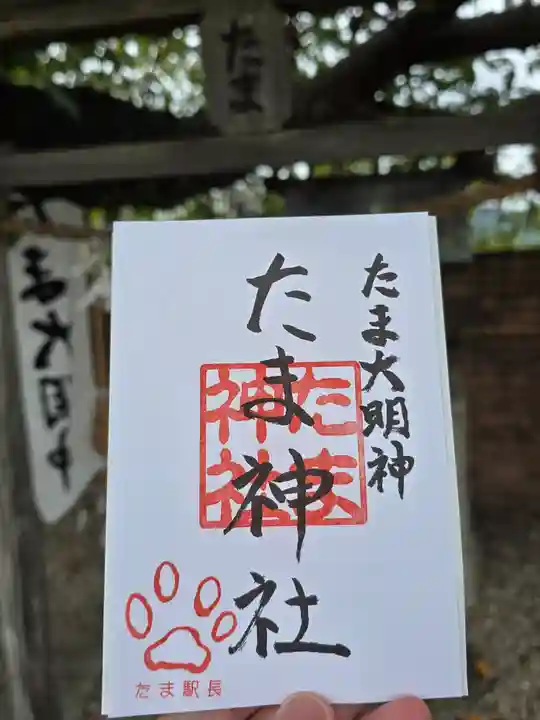 たま
ま大明神
たま大明神
たま神社
たま神社
たま駅長